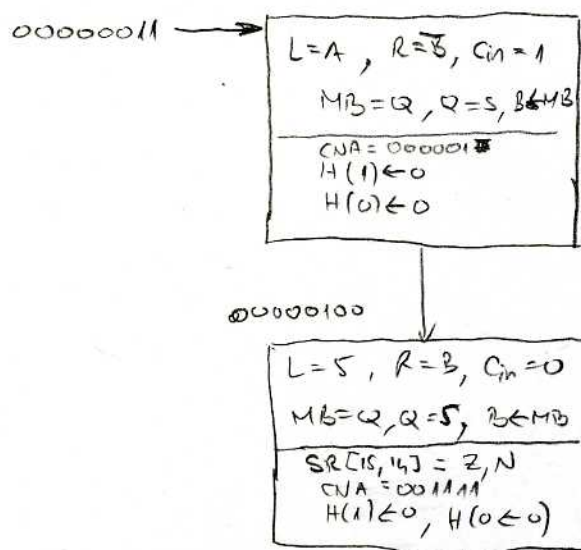 00000011
L=A , R=B̅, Cin=1
MB=Q, Q=S, B←MB
CNA = 000001
H(1)←0
H(0)←0
00000100
L=5 , R=B, Cin=0
MB=Q, Q=S, B←MB
SR[15,14] = Z,N
CNA = 001111
H(1)←0, H(0←0)